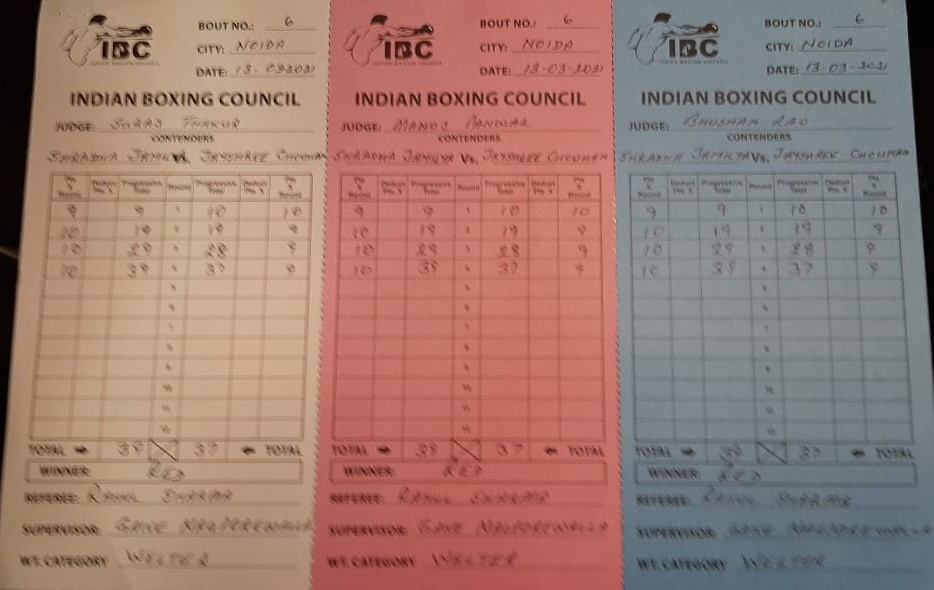 BOUT NO.: 6
IBC
INDIAN BOXING COUNCIL
CITY: NOIDA
DATE: 13-03-2021
INDIAN BOXING COUNCIL
JUDGE: SURAJ THAKUR
CONTENDERS
SHRADHA JAMLYA Vs. JAYSHREE CHOUHAN
Pts X Round Deduct Pts. X Progressive Total Round Progressive Total Deduct Pts. X Pts X Round
9 9 1 10 10
10 19 2 19 9
10 29 3 28 9
10 39 4 37 9
5
6
7
8
9
10
11
12
TOTAL 39 37 TOTAL
WINNER: RED
REFEREE: RAHUL SHARMA
SUPERVISOR: GANE
WT. CATEGORY WELTER
BOUT NO.: 6
IBC
INDIAN BOXING COUNCIL
CITY: NOIDA
DATE: 13-03-2021
INDIAN BOXING COUNCIL
JUDGE: MANOJ PANWAR
CONTENDERS
SHRADHA JAMLYA Vs. JAYSHREE CHOUHAN
Pts X Round Deduct Pts. X Progressive Total Round Progressive Total Deduct Pts. X Pts X Round
9 9 1 10 10
10 19 2 19 9
10 29 3 28 9
10 39 4 37 9
5
6
7
8
9
10
11
12
TOTAL 39 37 TOTAL
WINNER: RED
REFEREE: RAHUL SHARMA
SUPERVISOR: GANE
WT. CATEGORY WELTER
BOUT NO.: 6
IBC
INDIAN BOXING COUNCIL
CITY: NOIDA
DATE: 13-03-2021
INDIAN BOXING COUNCIL
JUDGE: BHUSHAN RAO
CONTENDERS
SHRADHA JAMLYA Vs. JAYSHREE CHOUHAN
Pts X Round Deduct Pts. X Progressive Total Round Progressive Total Deduct Pts. X Pts X Round
9 9 1 10 10
10 19 2 19 9
10 29 3 28 9
10 39 4 37 9
5
6
7
8
9
10
11
12
TOTAL 39 37 TOTAL
WINNER: RED
REFEREE: RAHUL SHARMA
SUPERVISOR: GANE
WT. CATEGORY WELTER